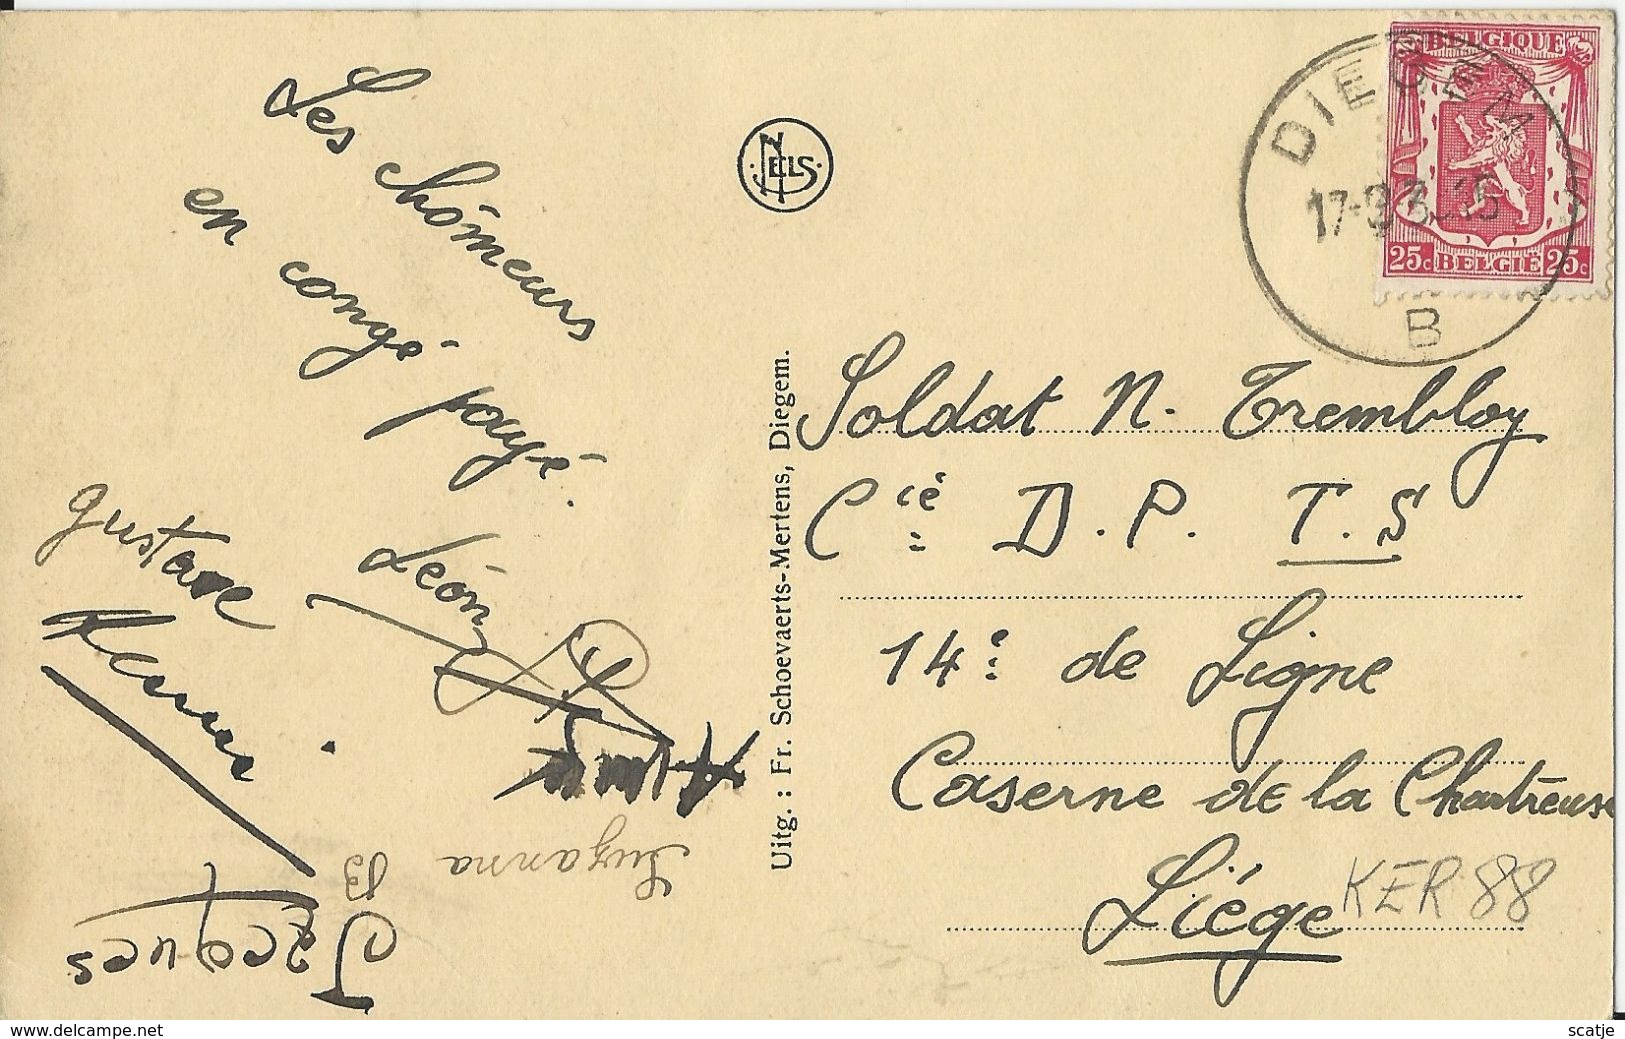 Les chômeurs
en congé payé.
Léon
Gustave
Jacques
Suzanna
B
NELS
Uitg. : Fr. Schoevaerts-Mertens, Diegem.
BELGIQUE
25c BELGIË 25c
DIEGEM
B
Soldat N. Trembloy
Cié D.P. T.S
14e de Ligne
Caserne de la Chartreuse
Liége
KER 88
www.delcampe.net
scatje